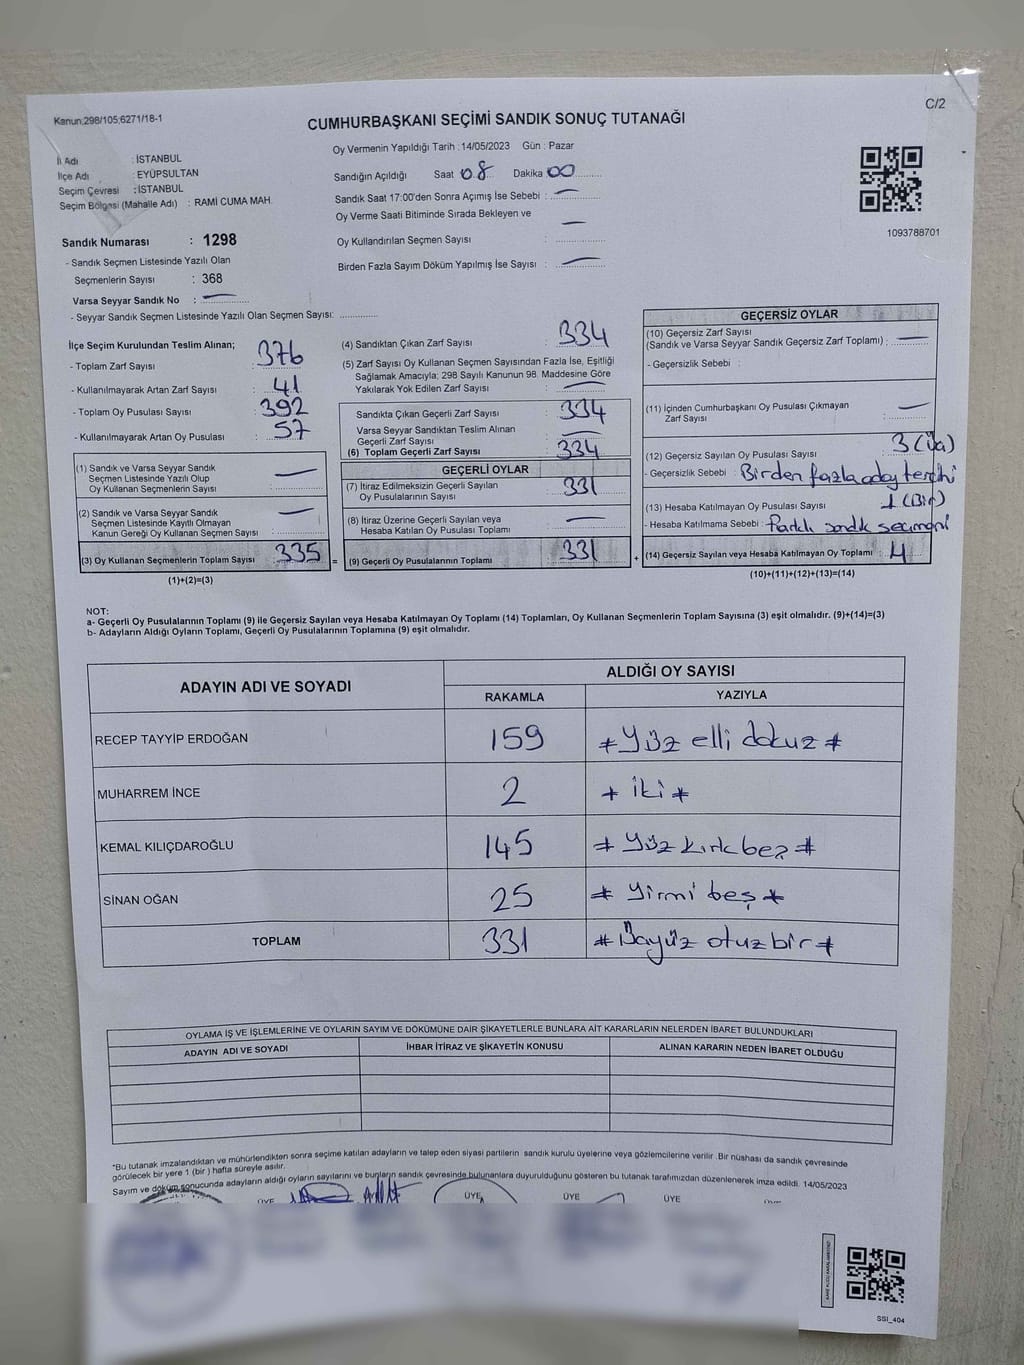 C/2
Kanun;298/105;6271/18-1
CUMHURBAŞKANI SEÇİMİ SANDIK SONUÇ TUTANAĞI
İl Adı : İSTANBUL
İlçe Adı : EYÜPSULTAN
Seçim Çevresi : İSTANBUL
Seçim Bölgesi (Mahalle Adı) : RAMİ CUMA MAH.
Oy Vermenin Yapıldığı Tarih : 14/05/2023 Gün : Pazar
Sandığın Açıldığı Saat 08 Dakika 00
Sandık Saat 17:00'den Sonra Açımış İse Sebebi : —
Oy Verme Saati Bitiminde Sırada Bekleyen ve —
Oy Kullandırılan Seçmen Sayısı :
Birden Fazla Sayım Döküm Yapılmış İse Sayısı : —
1093788701
Sandık Numarası : 1298
- Sandık Seçmen Listesinde Yazılı Olan
Seçmenlerin Sayısı : 368
Varsa Seyyar Sandık No : —
- Seyyar Sandık Seçmen Listesinde Yazılı Olan Seçmen Sayısı:
İlçe Seçim Kurulundan Teslim Alınan;
- Toplam Zarf Sayısı : 376
- Kullanılmayarak Artan Zarf Sayısı : 41
- Toplam Oy Pusulası Sayısı : 392
- Kullanılmayarak Artan Oy Pusulası : 57
(1) Sandık ve Varsa Seyyar Sandık
Seçmen Listesinde Yazılı Olup
Oy Kullanan Seçmenlerin Sayısı : —
(2) Sandık ve Varsa Seyyar Sandık
Seçmen Listesinde Kayıtlı Olmayan
Kanun Gereği Oy Kullanan Seçmen Sayısı : —
(3) Oy Kullanan Seçmenlerin Toplam Sayısı : 335
(1)+(2)=(3)
(4) Sandıktan Çıkan Zarf Sayısı : 334
(5) Zarf Sayısı Oy Kullanan Seçmen Sayısından Fazla İse, Eşitliği
Sağlamak Amacıyla; 298 Sayılı Kanunun 98. Maddesine Göre
Yakılarak Yok Edilen Zarf Sayısı : —
Sandıkta Çıkan Geçerli Zarf Sayısı : 334
Varsa Seyyar Sandıktan Teslim Alınan
Geçerli Zarf Sayısı : —
(6) Toplam Geçerli Zarf Sayısı : 334
GEÇERLİ OYLAR
(7) İtiraz Edilmeksizin Geçerli Sayılan
Oy Pusulalarının Sayısı : 331
(8) İtiraz Üzerine Geçerli Sayılan veya
Hesaba Katılan Oy Pusulaları Toplamı : —
(9) Geçerli Oy Pusulalarının Toplamı : 331
GEÇERSİZ OYLAR
(10) Geçersiz Zarf Sayısı
(Sandık ve Varsa Seyyar Sandık Geçersiz Zarf Toplamı) : —
- Geçersizlik Sebebi :
(11) İçinden Cumhurbaşkanı Oy Pusulası Çıkmayan
Zarf Sayısı : —
(12) Geçersiz Sayılan Oy Pusulası Sayısı : 3 (Üç)
- Geçersizlik Sebebi : Birden fazla aday tercihi
(13) Hesaba Katılmayan Oy Pusulası Sayısı : 1 (Bir)
- Hesaba Katılmama Sebebi : sandık seçmeni
(14) Geçersiz Sayılan veya Hesaba Katılmayan Oy Toplamı : 4
(10)+(11)+(12)+(13)=(14)
NOT:
a- Geçerli Oy Pusulalarının Toplamı (9) ile Geçersiz Sayılan veya Hesaba Katılmayan Oy Toplamı (14) Toplamları, Oy Kullanan Seçmenlerin Toplam Sayısına (3) eşit olmalıdır. (9)+(14)=(3)
b- Adayların Aldığı Oyların Toplamı, Geçerli Oy Pusulalarının Toplamına (9) eşit olmalıdır.
ADAYIN ADI VE SOYADI ALDIĞI OY SAYISI
RAKAMLA YAZIYLA
RECEP TAYYİP ERDOĞAN 159 * Yüz elli dokuz *
MUHARREM İNCE 2 * iki *
KEMAL KILIÇDAROĞLU 145 * Yüz kırk beş *
SİNAN OĞAN 25 * Yirmi beş *
TOPLAM 331 * Üçyüz otuz bir *
OYLAMA İŞ VE İŞLEMLERİNE VE OYLARIN SAYIM VE DÖKÜMÜNE DAİR ŞİKAYETLERLE BUNLARA AİT KARARLARIN NELERDEN İBARET BULUNDUKLARI
ADAYIN ADI VE SOYADI İHBAR İTİRAZ VE ŞİKAYETİN KONUSU ALINAN KARARIN NEDEN İBARET OLDUĞU
*Bu tutanak imzalandıktan ve mühürlendikten sonra seçime katılan adayların ve talep eden siyasi partilerin sandık kurulu üyelerine veya gözlemcilerine verilir .Bir nüshası da sandık çevresinde
görülecek bir yere 1 (bir ) hafta süreyle asılır.
Sayım ve döküm sonucunda adayların aldığı oyların sayılarını ve bunların sandık çevresinde bulunanlara duyurulduğunu gösteren bu tutanak tarafımızdan düzenlenerek imza edildi. 14/05/2023
ÜYE ÜYE ÜYE ÜYE ÜYE
SSI_404